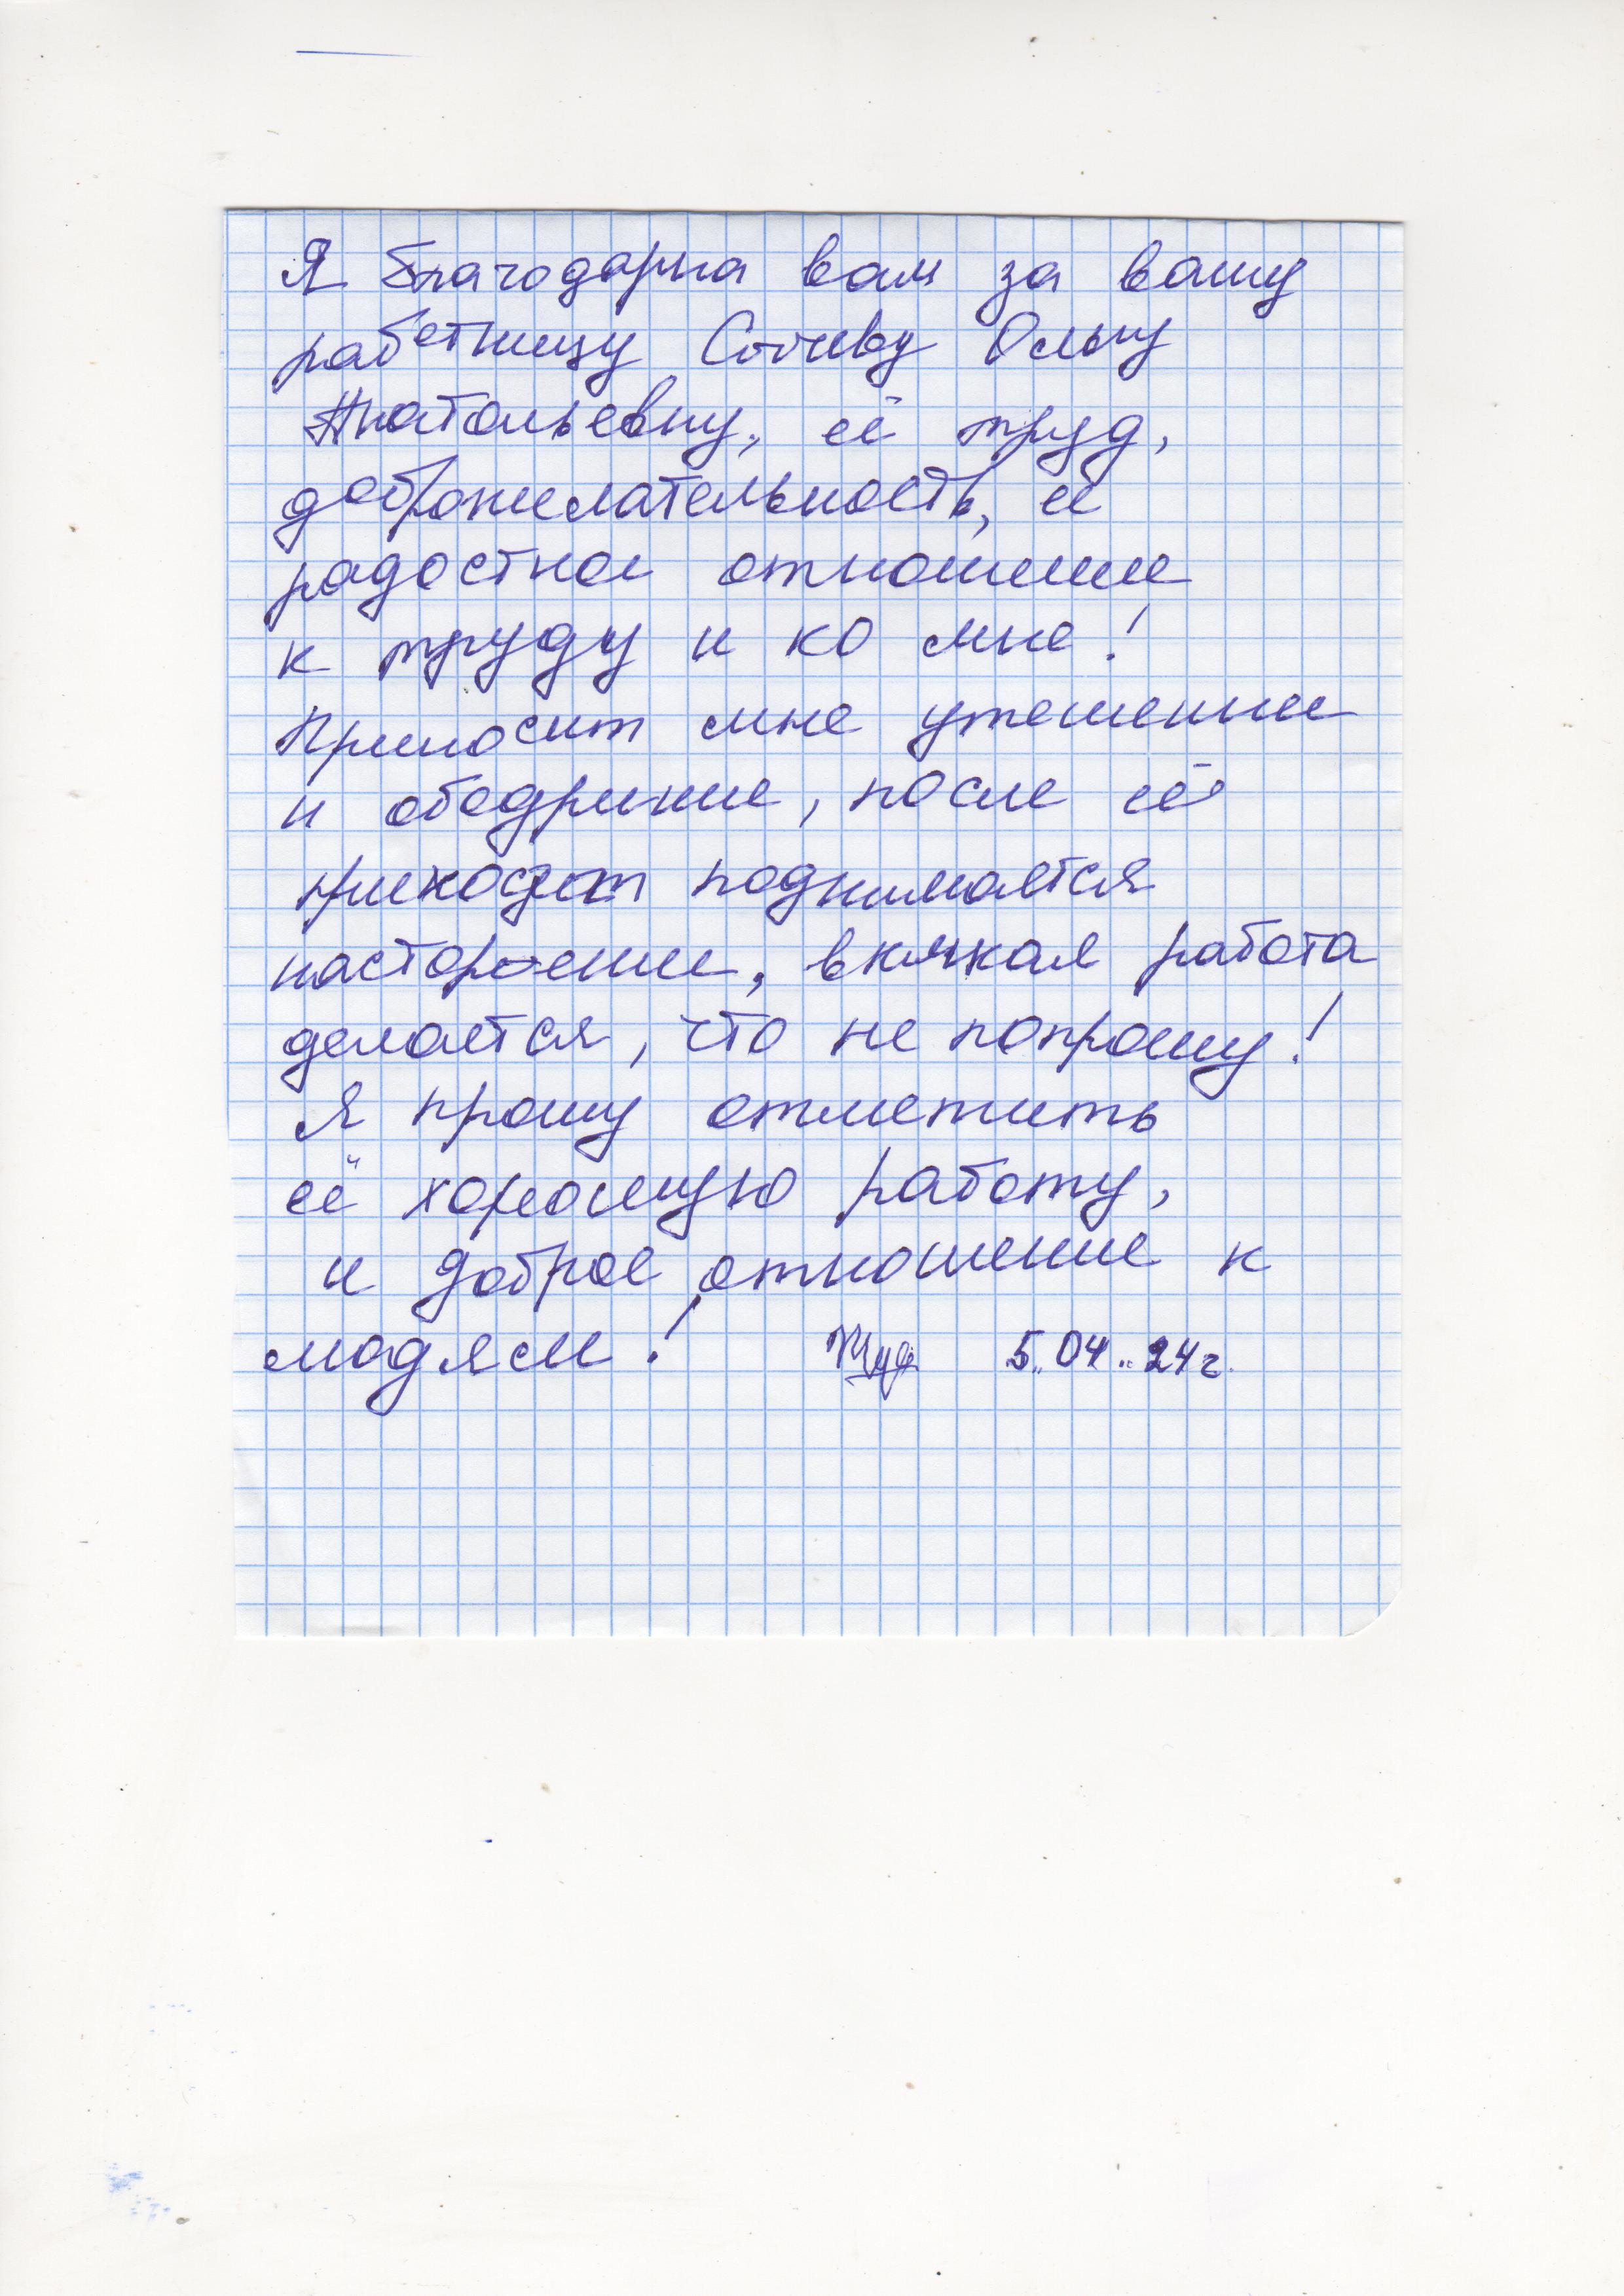 Я благодарна вам за вашу
работницу Ольгу
Анатольевну, её труд,
доброжелательность, её
радостное отношение
к труду и ко мне!
Приносит мне утешение
и ободрение, после её
приходит поднимается
настороение, вкякая работа
делается, что не попрошу!
Я прошу отметить
её хорошую работу,
и доброе отношение к
людям! 5.04.24г.